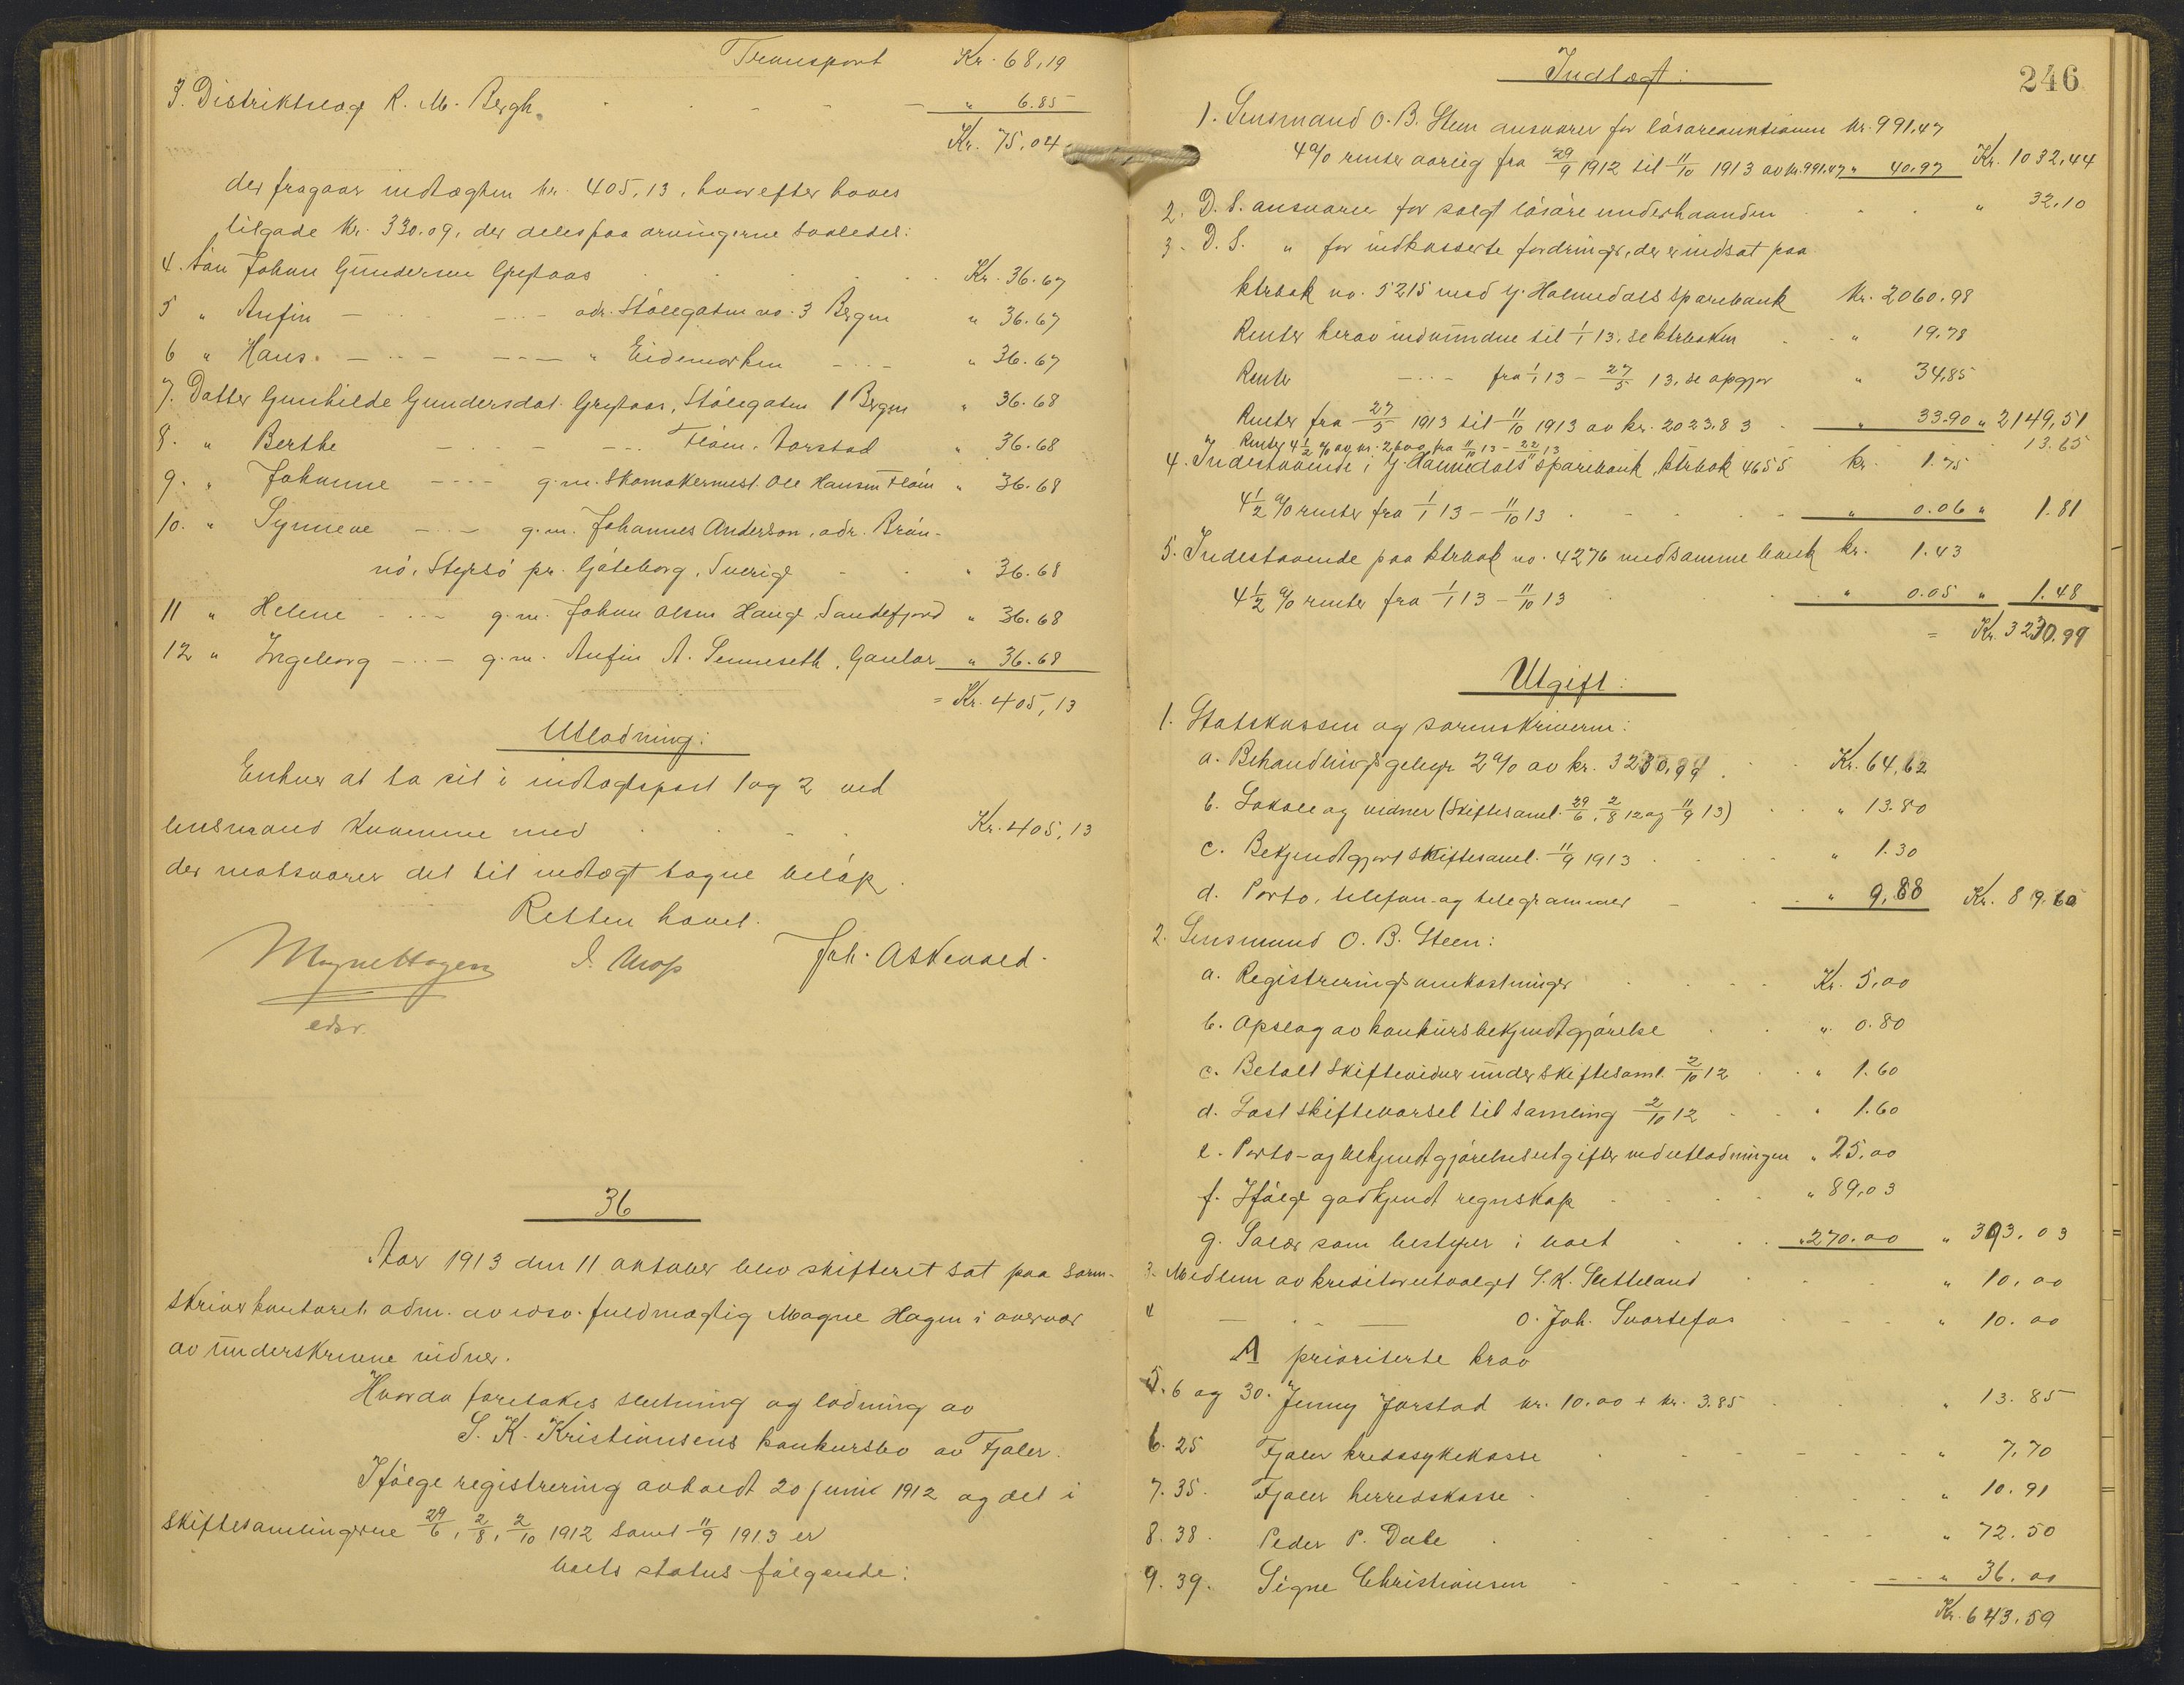 Transport Kr. 68,19
3. Distriktslæge K. M. Bergh. " 6.85
Kr. 75,04
der fragaar indtægten kr. 405,13, hvorefter haves
tilgode kr. 330.09, der deles paa arvingerne saaledes:
4. Søn Johan Gundersen Grytaas Kr. 36.67
5 " Anfin — adr. Stølegaten no. 3 Bergen " 36.67
6 " Hans — " Eidemarken " 36.67
7. Datter Gunhilde Gundersdat. Grytaas, Stølegaten 1 Bergen " 36.68
8. " Berthe Aarstad " 36.68
9. " Johanne — g.m. Skomakermest. Ole Hansen " 36.68
10. " Synneve — g.m. Johannes Anderson, adr. Brän-
nö, Styrsö pr. Göteborg, Sverige " 36.68
11 " Helene — g.m. Johan Olsen Hauge, Sandefjord " 36.68
12 " Ingeborg — g.m. Anfin A. Senneseth, Gaular " 36.68
= Kr. 405,13
Utlodning:
Enhver at ta sit i indtægtspost 1 og 2 ved
lensmand Kvamme med Kr. 405,13
der motsvarer det til indtægt tagne beløp.
Retten hævet.
Magne Hagen Joh. Askevold.
edsv.
36
Aar 1913 den 11 oktober blev skifteret sat paa soren-
skriverkontoret, adm. av edsv. fuldmægtig Magne Hagen i overvær
av underskrevne vidner.
Hvorda foretokes slutning og lodning av
S. K. Kristiansens konkursbo av Fjaler.
Ifølge registrering avholdt 20 juni 1912 og det i
skiftesamlingerne 29/6, 2/8, 2/10 1912 samt 11/9 1913 er
boets status følgende:
246
Indtægt:
1. Lensmand O. B. Steen ansvarer for løsøreauktionen kr. 991,47
4% renter aarlig fra 29/9 1912 til 11/10 1913 av kr. 991,47 " 40,97 Kr. 1032,44
2. D. S. ansvarer for solgt løsøre underhaanden " 32,10
3. D. S. " for indkasserte fordringer, der er indsat paa
ktrbok no. 5215 med Y. Holmedals Sparebank kr. 2060.98
Renter herav indvundne til 1/1 13, se ktrboken " 19.78
Renter — fra 1/1 13 – 27/5 13, se opgjør " 34,85
Renter fra 27/5 1913 til 11/10 1913 av kr. 2023.83 " 33.90 " 2149,51
Renter 4 1/2 % av kr. 2600 fra 11/10 13 – 22/11 13 13.65
4. Indestaaende i Y. Holmedals Sparebank, ktrbok 4655 kr. 1.75
4 1/2 % renter fra 1/1 13 – 11/10 13 " 0.06 " 1.81
5. Indestaaende paa ktrbok no. 4276 med samme bank kr. 1.43
4 1/2 % renter fra 1/1 13 – 11/10 13 " 0.05 " 1.48
= Kr. 3230.99
Utgift:
1. Statskassen og sorenskriveren:
a. Behandlingsgebyr 2% av kr. 3230,99 Kr. 64,62
b. Lokale og vidner (Skiftesaml. 29/6, 2/8 12 og 11/9 13) " 13.80
c. Bekjendtgjort skiftesaml. 11/9 1913 " 1.30
d. Porto, telefon og telegrammer " 9,88 Kr. 89.60
2. Lensmand O. B. Steen:
a. Registreringsomkostninger Kr. 5,00
b. Opslag av konkursbekjendtgjørelse " 0.80
c. Betalt skiftevidner under skiftesaml. 2/10 12 " 1.60
d. Last skiftevarsel til samling 2/10 12 " 1.60
e. Porto- og bekjendtgjørelsesutgifter ved utlodningen " 25,00
f. Ifølge godkjendt regnskap " 89,03
g. Salær som bestyrer i boet " 270.00 " 393.03
3. Medlem av kreditorutvalget S. K. Sætteland " 10,00
4 — " — O. Joh. Svartefos " 10.00
A prioriterte krav
5. 6 og 30. Jenny Jarstad kr. 10.00 + kr. 3.85 " 13.85
6. 25 Fjaler kredssykekasse " 7,70
7. 35. Fjaler herredskasse " 10.91
8. 38. Peder P. Dale " 72.50
9. 39. Signe Christiansen " 36.00
Kr. 643,59